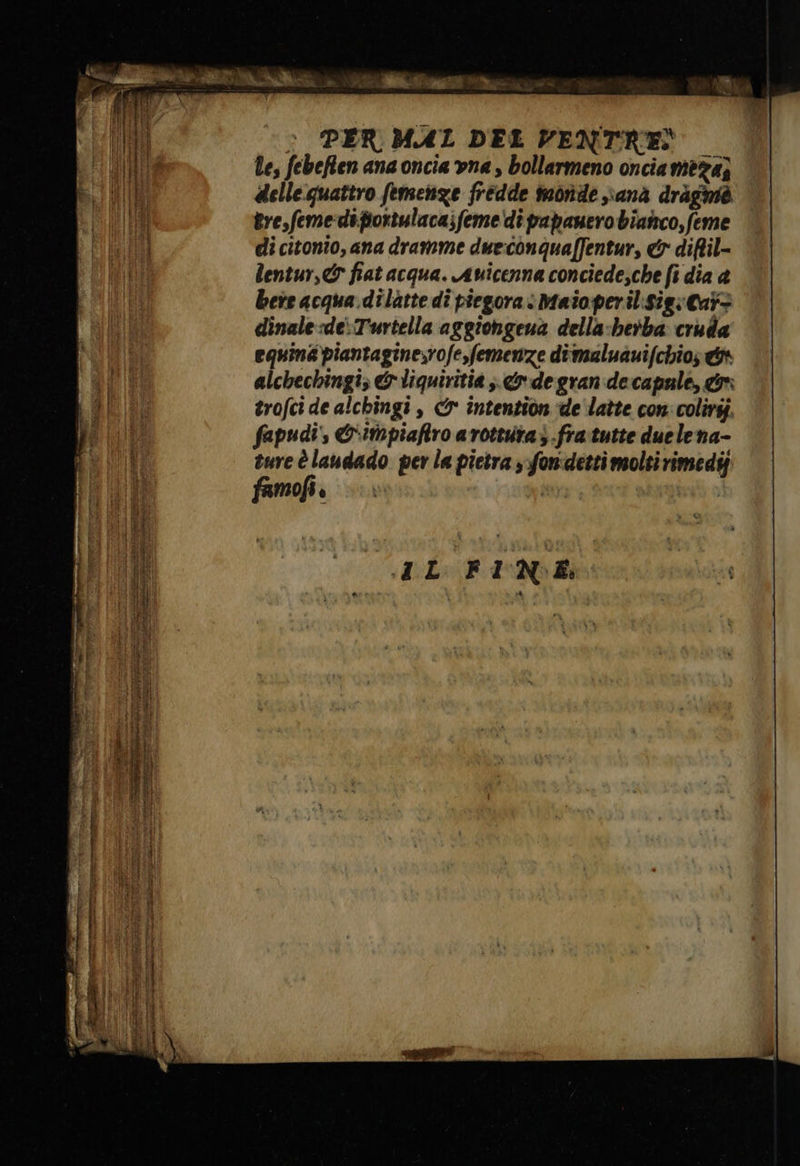 PER MAL DEL VENTRE
le, ſebeſten ana oncia vna, bollarmeno oncia meza,
delle quattro ſemenze fredde monde, ana dragme
tre, ſeme di portulaca, ſeme di papauero bianco, ſeme
di citonio, ana dramme due conquaſſentur, & diſtil-
lentur, & fiat acqua. Auicenna conciede, che ſi dia a
bere acqua di latte di piegora: Ma io per il Sig. Car-
dinale de Turtella aggiongeua della herba cruda
equina piantagine, roſe, ſemenze di maluauiſchio, &
alchechingi, & liquiritia, & de gran de capule, &
troſci de alchingi, & intention de latte con colirij
ſapudi, & impiaſtro a rottura, fra tutte due le na-
ture è laudado per la pietra, ſon detti molti rimedij
famoſi.
IL FINE.